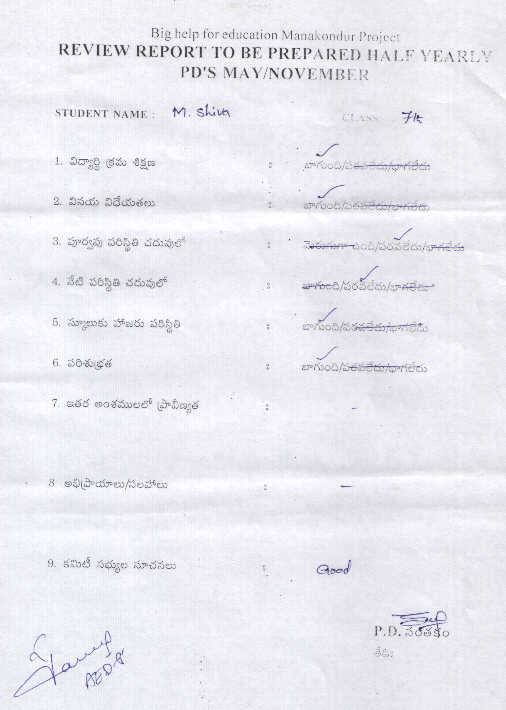 Big help for education Manakondur Project
REVIEW REPORT TO BE PREPARED HALF YEARLY
PD'S MAY/NOVEMBER
STUDENT NAME : M. Shiva CLASS 7th
1. విద్యార్థి క్రమ శిక్షణ : బాగుంది/పరవలేదు/భాగలేదు
2. వినయ విదేయతలు : బాగుంది/పరవలేదు/భాగలేదు
3. పూర్వపు పరిస్థితి చదువులో : మెరుగుగా ఉంది/పరవలేదు/భాగలేదు
4. నేటి పరిస్థితి చదువులో : బాగుంది/పరవలేదు/భాగలేదు
5. స్కూలుకు హాజరు పరిస్థితి : బాగుంది/పరవలేదు/భాగలేదు
6. పరిశుభ్రత : బాగుంది/పరవలేదు/భాగలేదు
7. ఇతర అంశములలో ప్రావీణ్యత : -
8 అభిప్రాయాలు/సలహాలు : -
9. కమిటీ సభ్యుల సూచనలు : Good
P.D. సంతకం
తేదిః